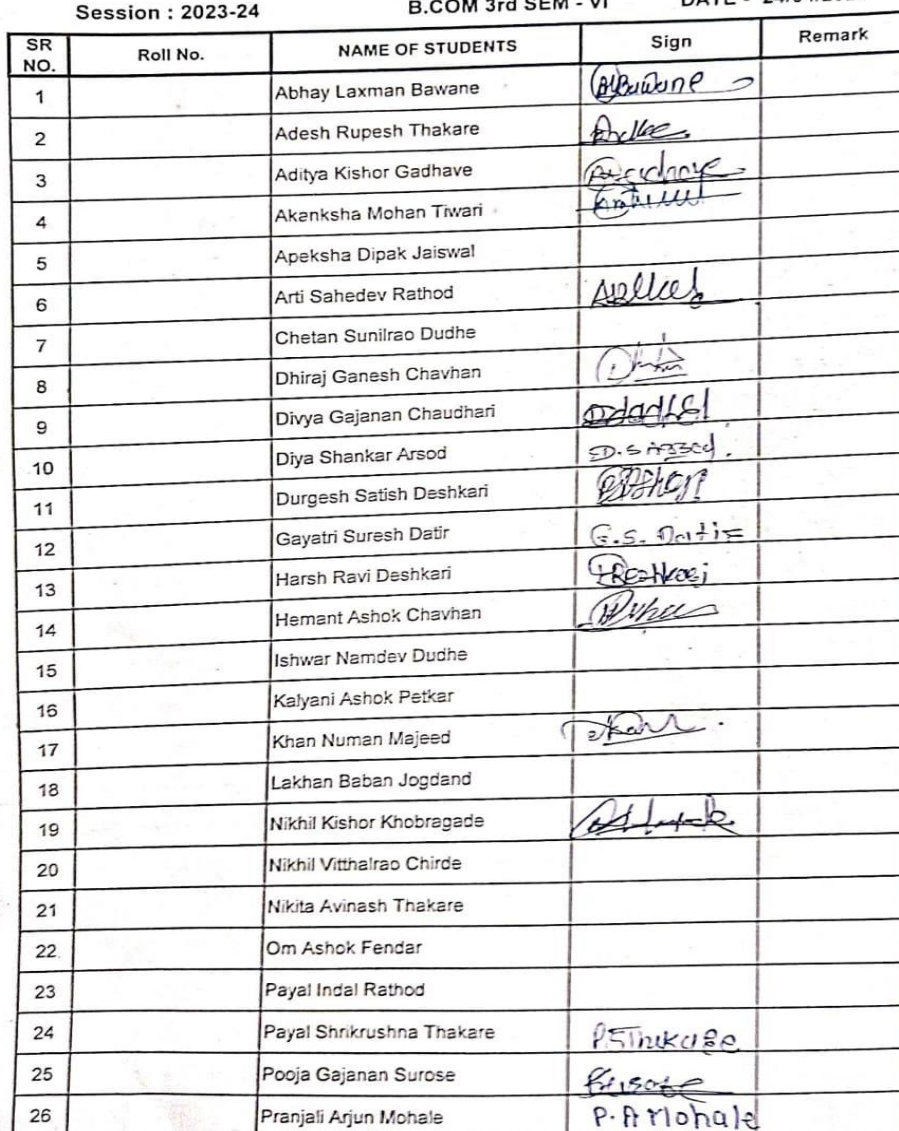 Session : 2023-24 B.COM 3rd SEM - VI DATE -
SR NO. Roll No. NAME OF STUDENTS Sign Remark
1 Abhay Laxman Bawane
2 Adesh Rupesh Thakare
3 Aditya Kishor Gadhave
4 Akanksha Mohan Tiwari
5 Apeksha Dipak Jaiswal
6 Arti Sahedev Rathod
7 Chetan Sunilrao Dudhe
8 Dhiraj Ganesh Chavhan
9 Divya Gajanan Chaudhari
10 Diya Shankar Arsod
11 Durgesh Satish Deshkari
12 Gayatri Suresh Datir G.S. Datir
13 Harsh Ravi Deshkari
14 Hemant Ashok Chavhan
15 Ishwar Namdev Dudhe
16 Kalyani Ashok Petkar
17 Khan Numan Majeed
18 Lakhan Baban Jogdand
19 Nikhil Kishor Khobragade
20 Nikhil Vitthalrao Chirde
21 Nikita Avinash Thakare
22 Om Ashok Fendar
23 Payal Indal Rathod
24 Payal Shrikrushna Thakare P.S Thakare
25 Pooja Gajanan Surose
26 Pranjali Arjun Mohale P. A Mohale